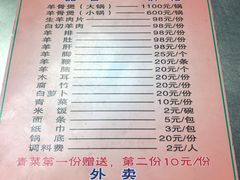 羊骨煲(大锅)——1100元/锅
羊骨煲(小锅)——600元/锅
生羊肉片——98元/份
白切羊肉——98元/份
羊排——98元/份
羊肚——98元/份
羊肝——98元/份
羊——20元/条
羊鞭——20元/条
羊脑——20元/个
木耳——20元/份
腐竹——20元/份
白萝卜——20元/份
青菜——10元/份
米饭——2元/碗
面条——5元/包
纸巾——3元/包
锅底——20元/份
调料费——2元/人
青菜第一份赠送,第二份10元/份
外卖